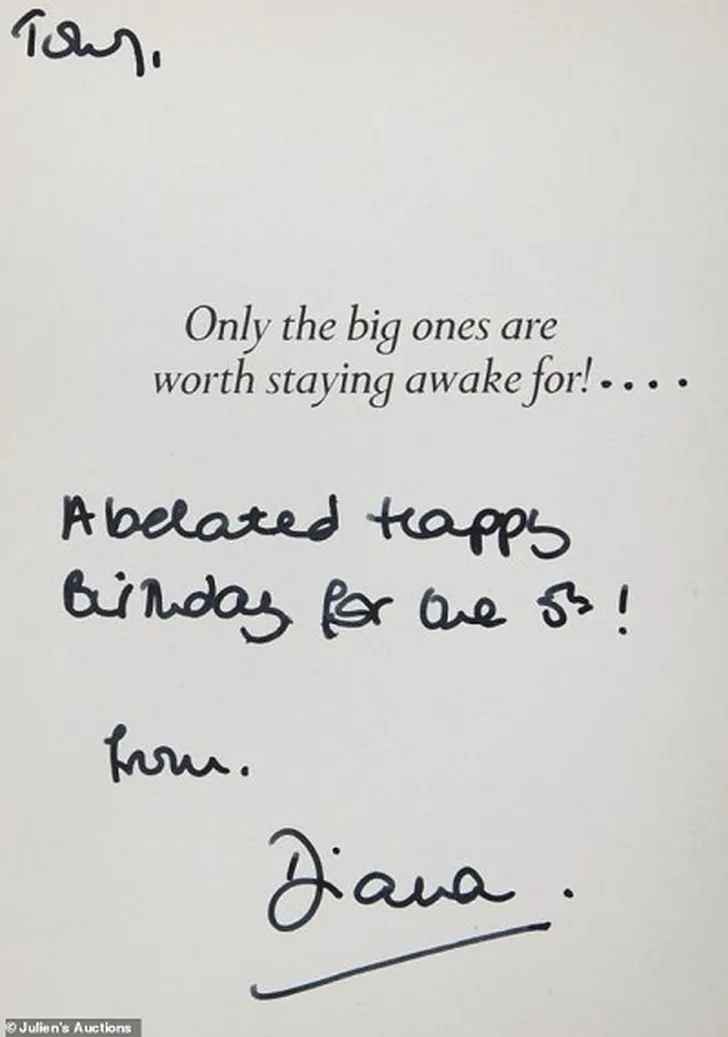 Tony,
Only the big ones are
worth staying awake for!....
A belated Happy
Birthday for the 5th!
from.
Diana.
© Julien's Auctions